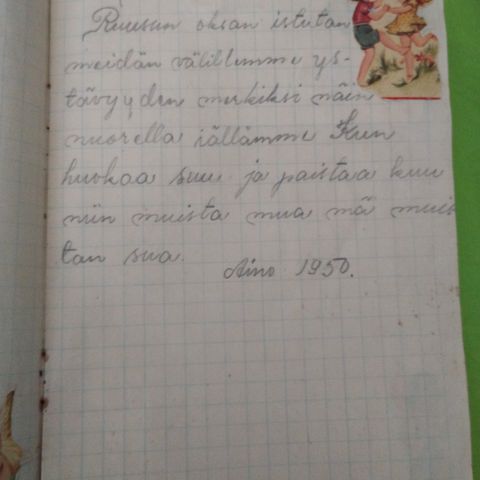 Ruusun oksan istutan
meidän välillemme ys-
tävyyden merkiksi näin
nuorella iällämme Kun
huokaa suu ja paistaa kuu
niin muista mua mä muis
tan sua.
Aino 1950.